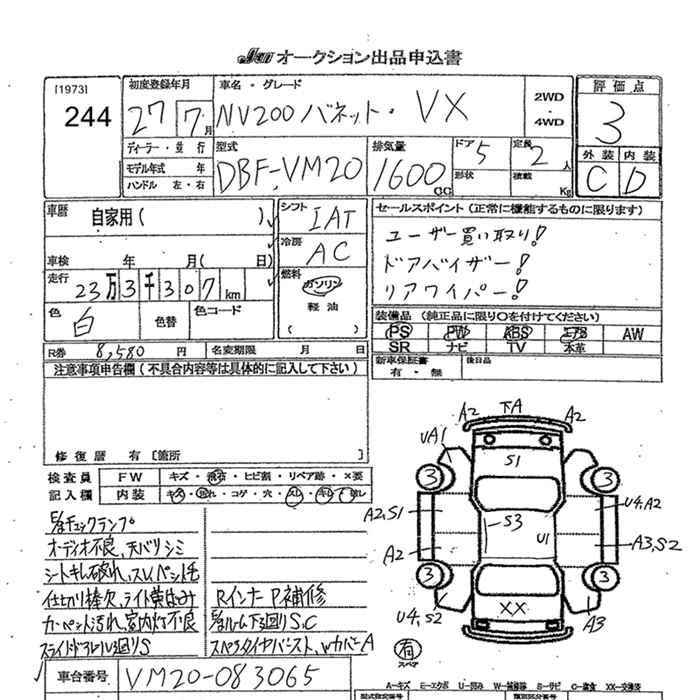 オークション出品申込書
[1973]
244
初度登録年月
27 7月
車名・グレード
NV200 バネット・ VX
2WD
・
4WD
評価点
3
外装 内装
C D
ディーラー・並行
モデル年式 年
ハンドル 左・右
型式
DBF-VM20
排気量
1600 CC
ドア 5
形状
定員 2人
積載 Kg
車歴 自家用( )
車検 年 月( 日)
走行 23万3千307km
色 白 色替 色コード
シフト IAT
冷房 AC
燃料 ガソリン
軽油
( )
セールスポイント(正常に機能するものに限ります)
ユーザー買い取り!
ドアバイザー!
リアワイパー!
装備品(純正品に限り○を付けてください)
PS PW ABS エアB AW
SR ナビ TV 本革
R券 8,580 円 名変期限 月 日
新車保証書 後日品
有・無
注意事項申告欄(不具合内容等は具体的に記入して下さい)
修復歴 有〔箇所 〕
検査員 FW キズ・飛石・ヒビ割・リペア跡・×要
記入欄 内装 キズ・汚れ・コゲ・穴・スレ・キレ・破レ
チェックランプ
オーディオ不良、天バリシミ
シートキレ破れ、スレ、ペット毛
仕切り棒欠、ライト黄ばみ
カーペット汚れ、室内灯不良
スライドドアレール廻りS
Rインナー P補修
ルーム下廻りS.C
スペアタイヤバースト、Wカバー A
A2 下A A2
UA1
S1
3 3
A2,S1 U4,A2
S3 U1
A2 A3,S2
3 3
U4,S2 XX A3
有
スペア
A-キズ E-エクボ U-凹み W-補修跡 S-サビ C-腐食 XX-交換済
車台番号 VM20-083065